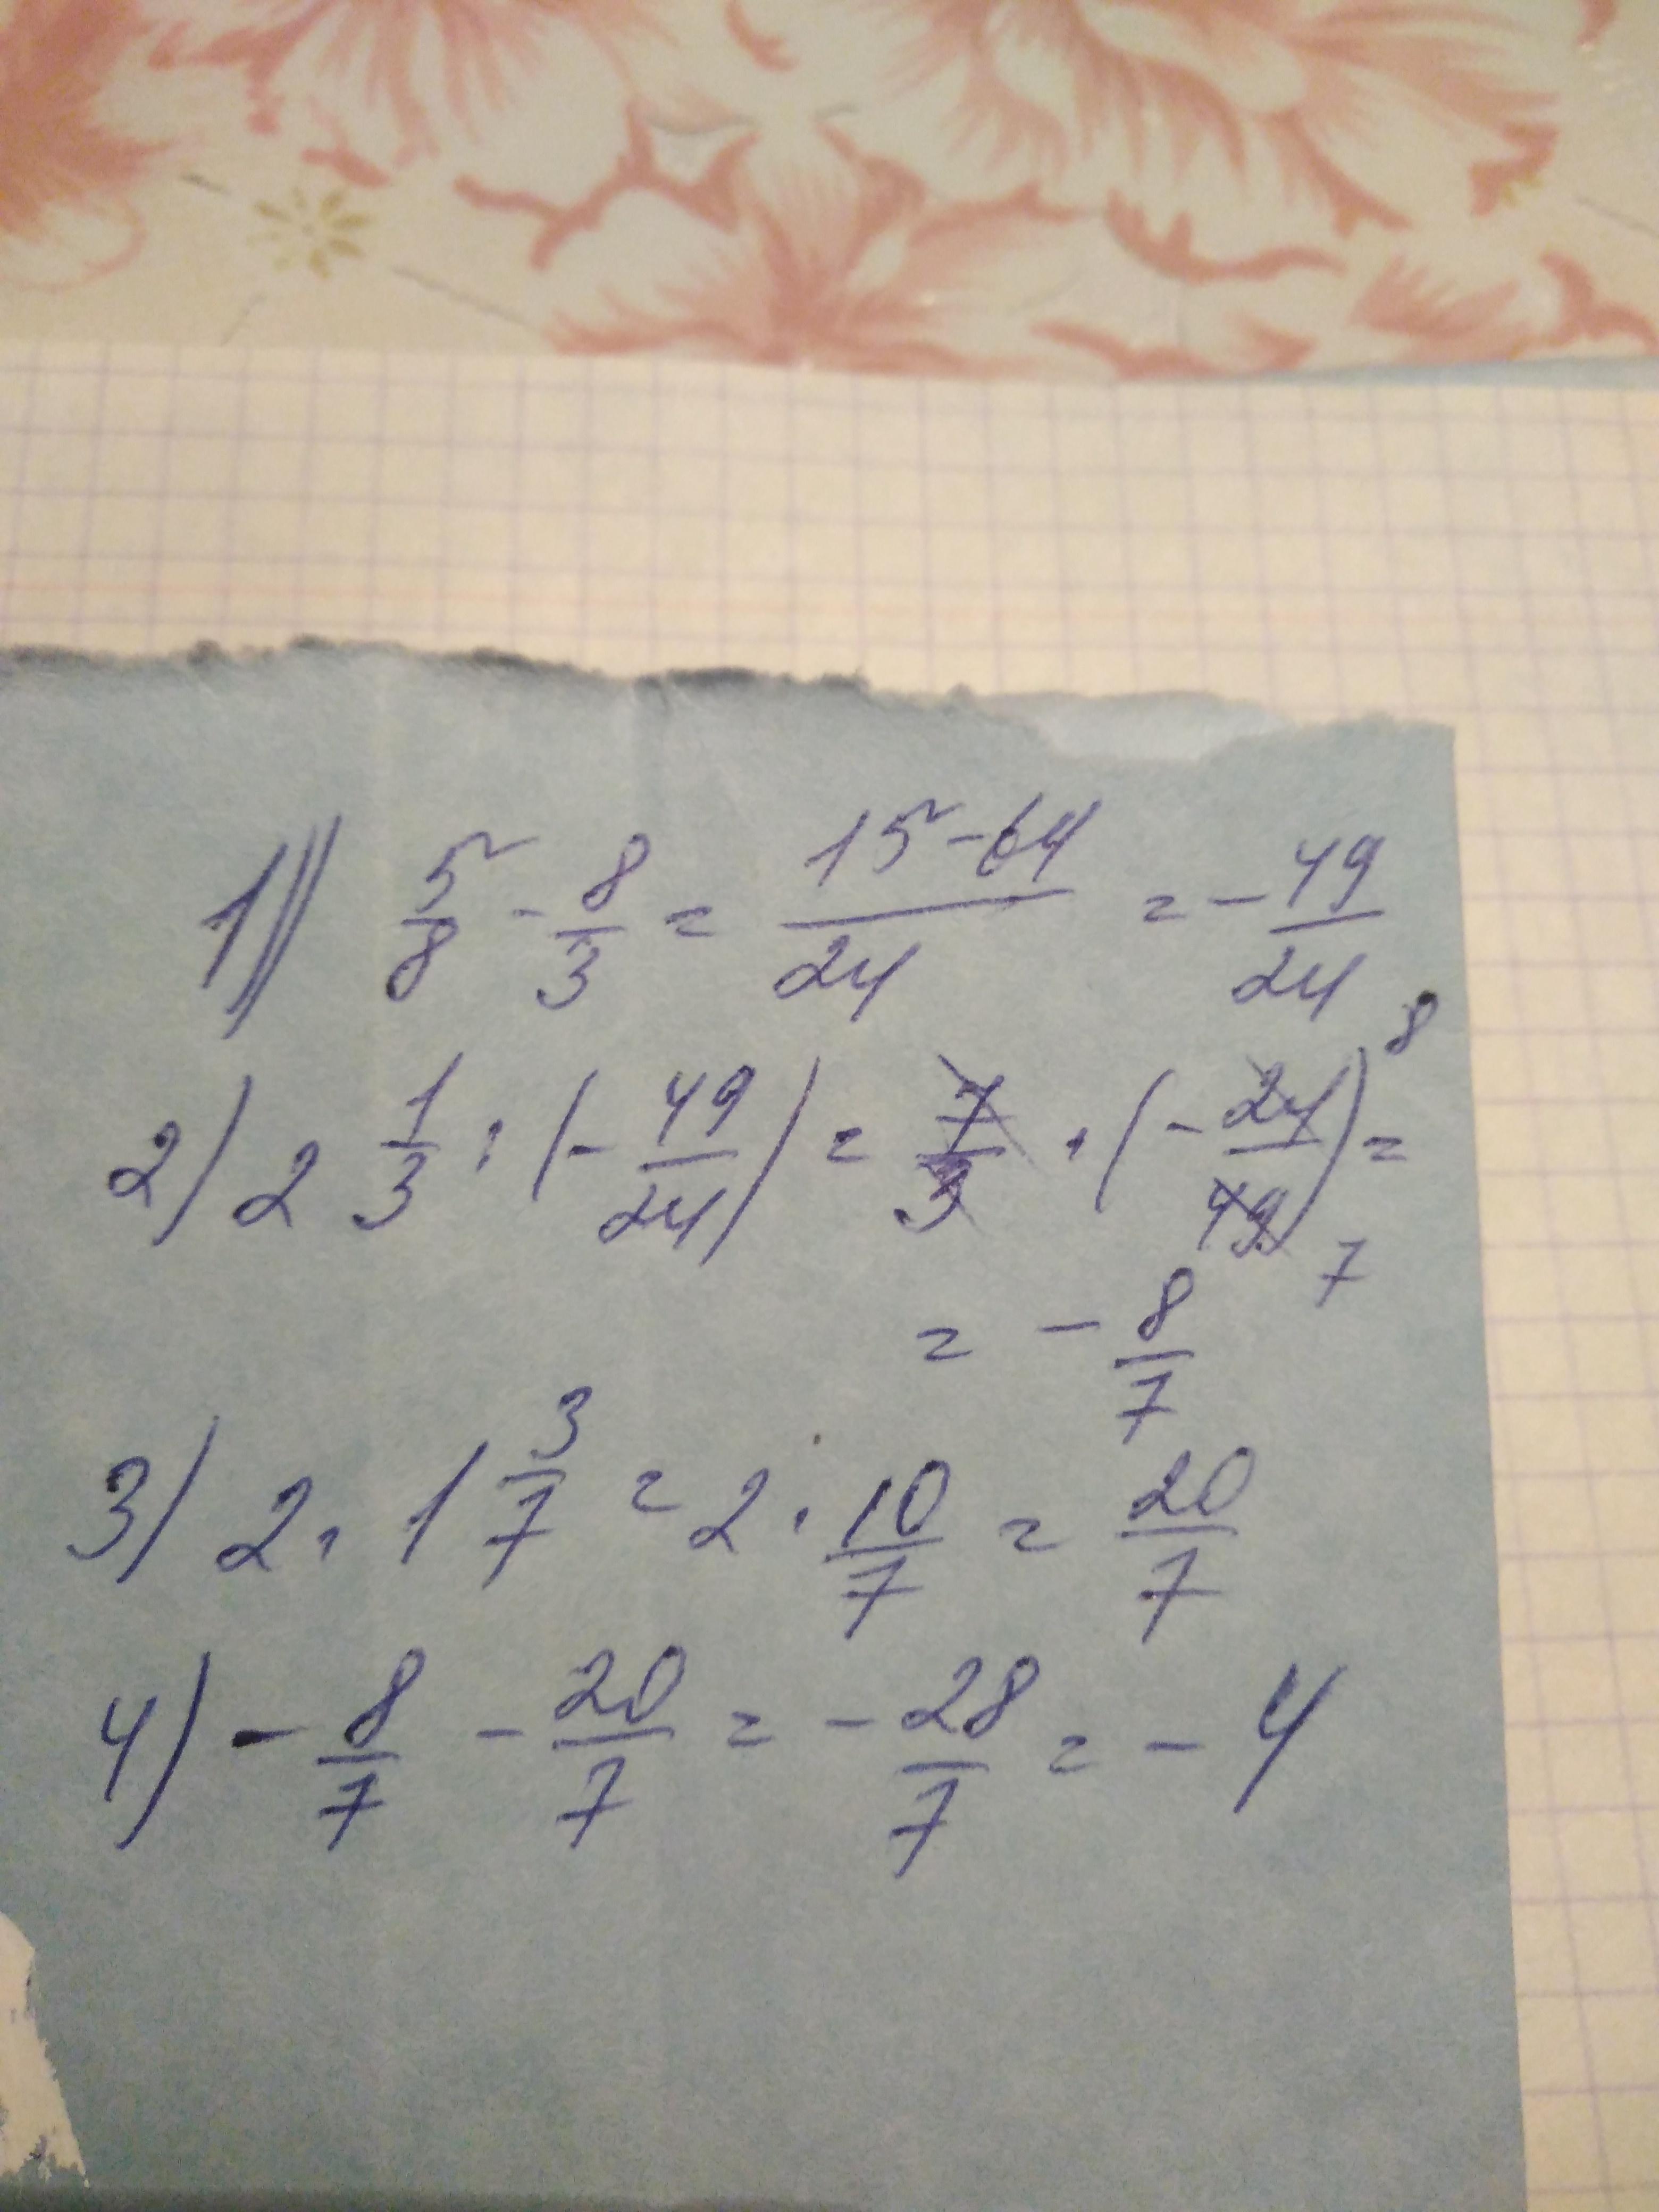 1) 5/8 - 8/3 = (15-64)/24 = - 49/24
2) 2 1/3 : (- 49/24) = 7/3 · (- 24/49) = 8 7
= - 8/7
3) 2 · 1 3/7 = 2 · 10/7 = 20/7
4) - 8/7 - 20/7 = - 28/7 = - 4